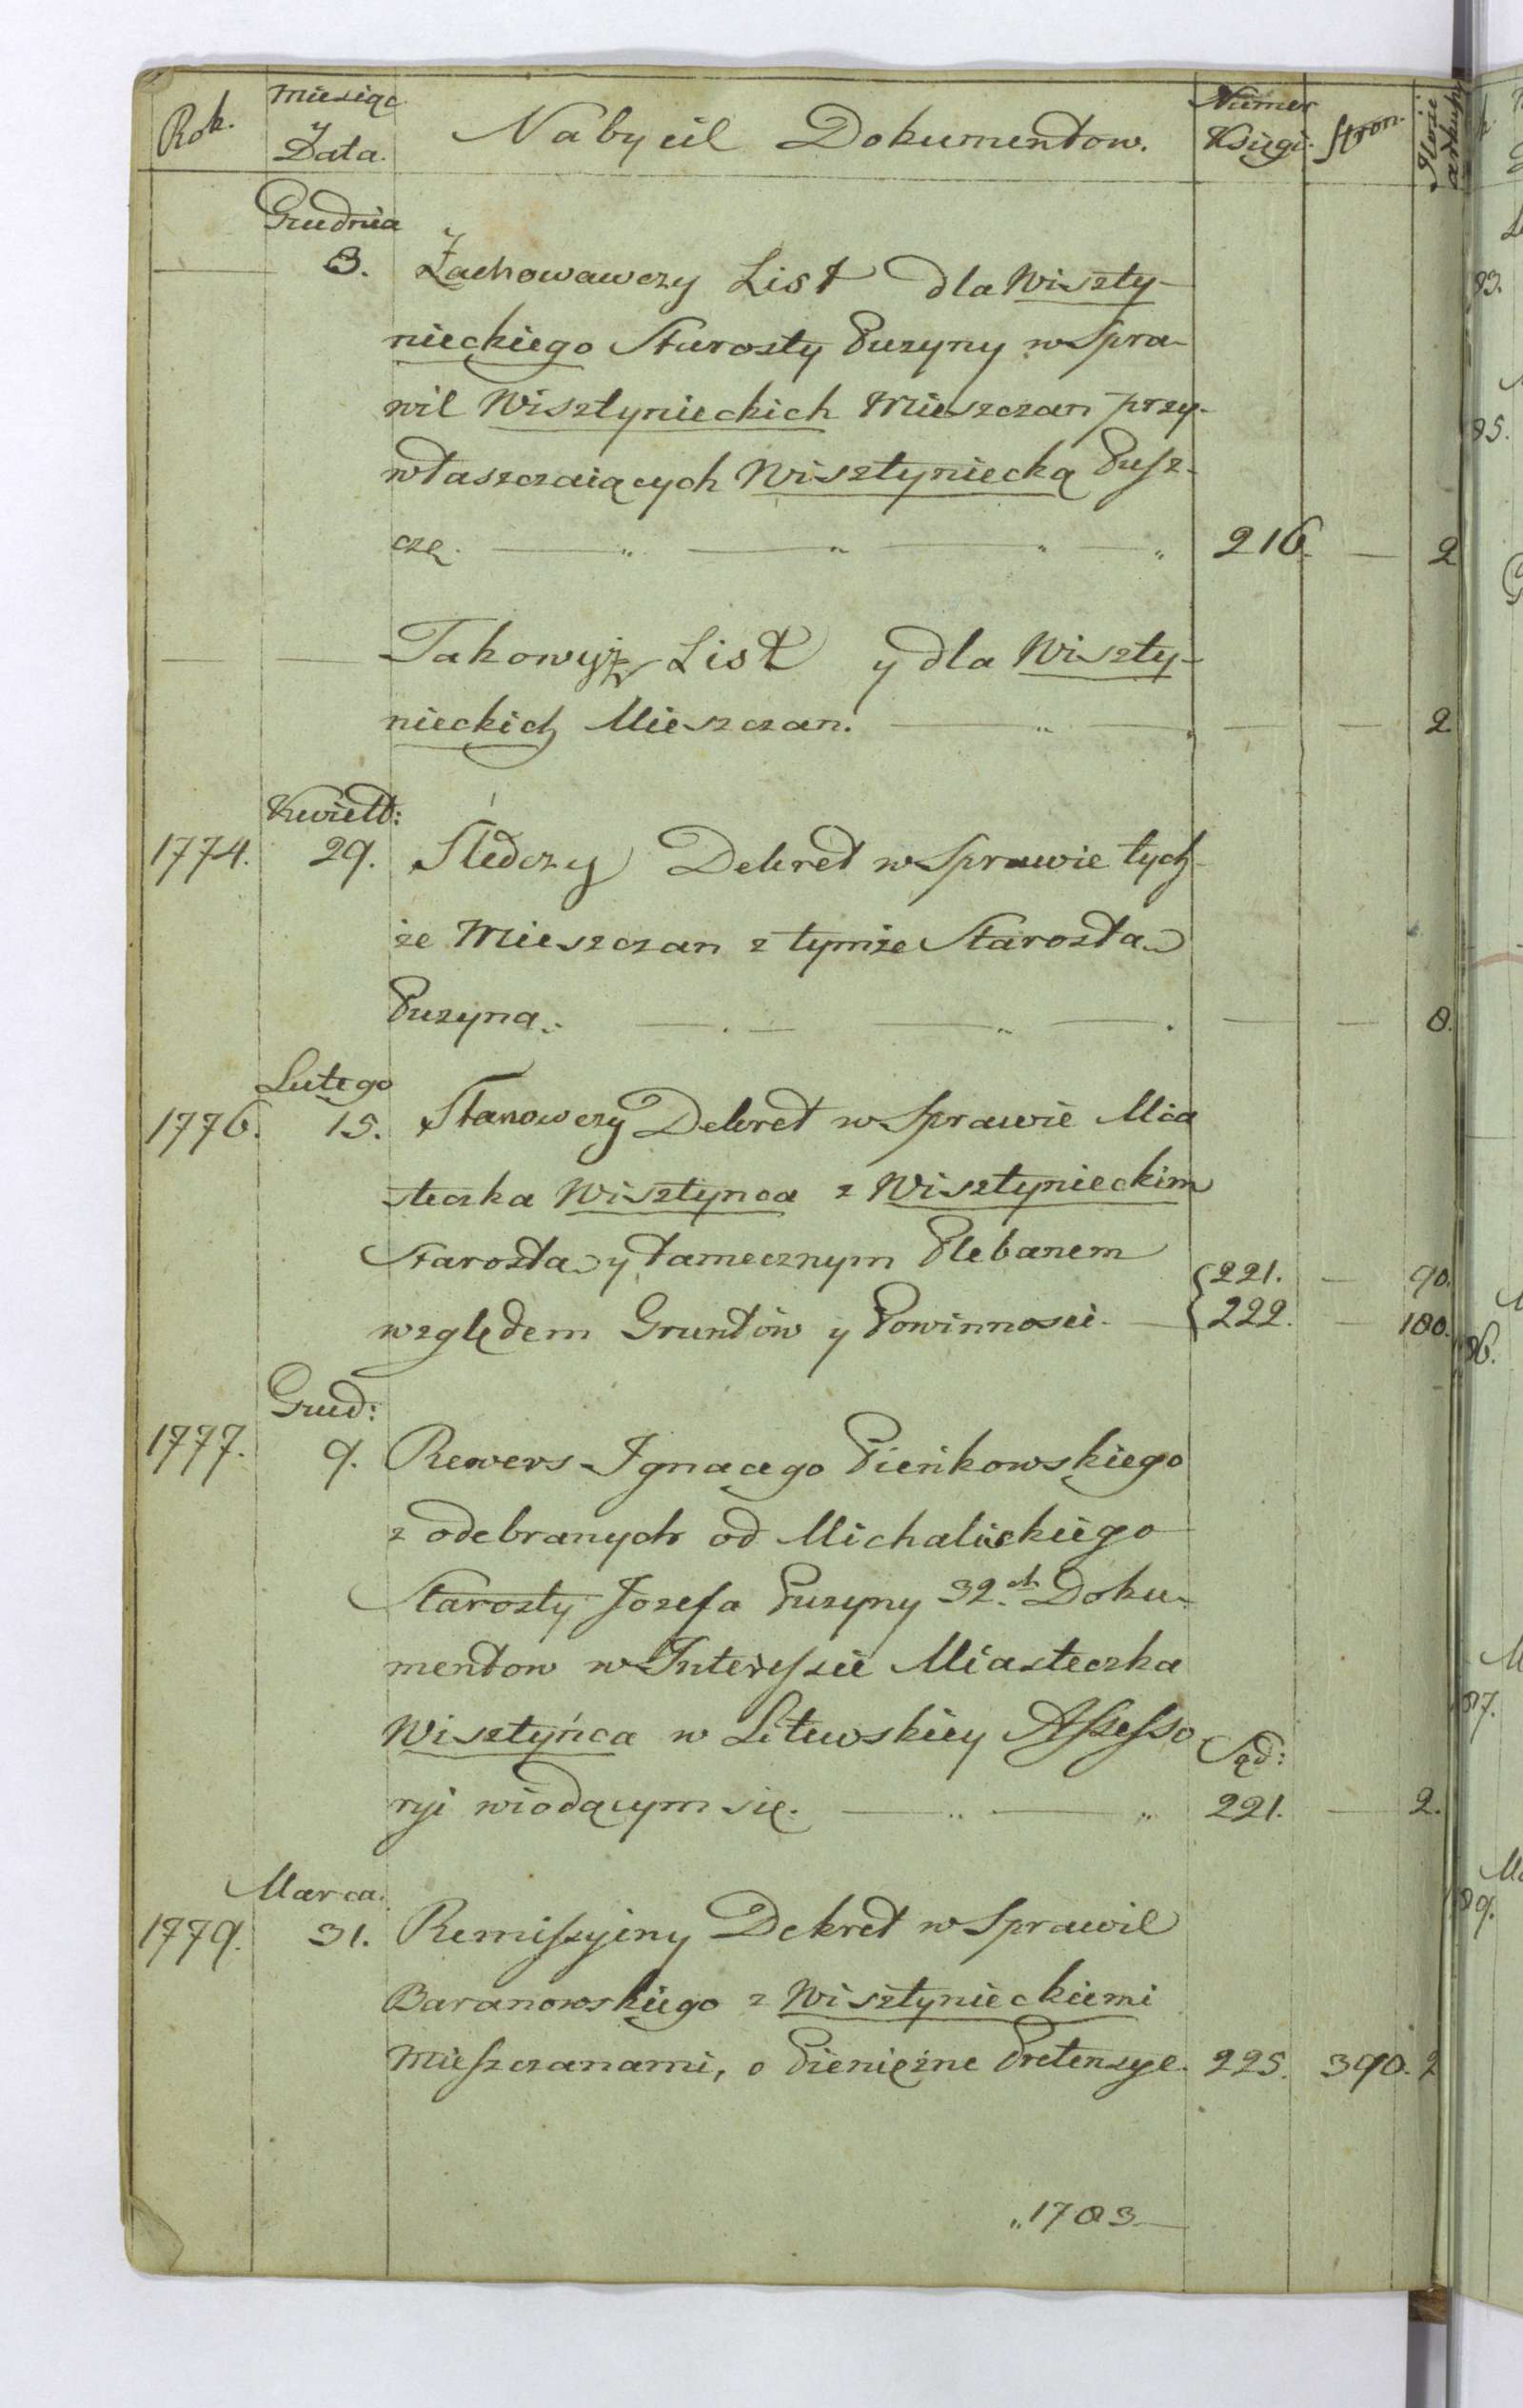 Rok. Miesiąc Data. Nabycie Dokumentow. Numer Księgi. Stron. Ilosc arkuszy
Grudnia
— 3. Zachowawczy List dla Wiszty-
nieckiego Starosty Puzyny w Spra-
wie Wisztynieckich Mieszczan przy-
właszczaiących Wisztyniecką Pusz-
czę. — „ — „ — „ — „ 216. — 2
— — Takowyż List y dla Wiszty-
nieckich Mieszczan. — „ — — — 2
Kwiett:
1774. 29. Sledczy Dekret w Sprawie tych-
że Mieszczan z tymże Starosta
Puzyna. — . — — „ — . — — 8.
Lutego
1776. 15. Stanowczy Dekret w Sprawie Mia
steczka Wisztynca z Wisztynieckim
Starosta y tamecznym Plebanem
{221. — 90.
względem Gruntów y Powinnosci. — {222. — 180.
Grud:
1777. 9. Rewers Ignacego Pieńkowskiego
z odebranych od Michaliskiego
Starosty Jozefa Puzyny 32.ch Doku-
mentow w Interessie Miasteczka
Wisztyńca w Litewskiey Assesso
Sąd:
ryi wiodącym się. — „ — „ 221. — 2.
Marca.
1779. 31. Remissyiny Dekret w Sprawie
Baranowskiego z Wisztynieckiemi
Mieszczanami, o Pieniężne Pretensye. 225. 390. 2
„1783—